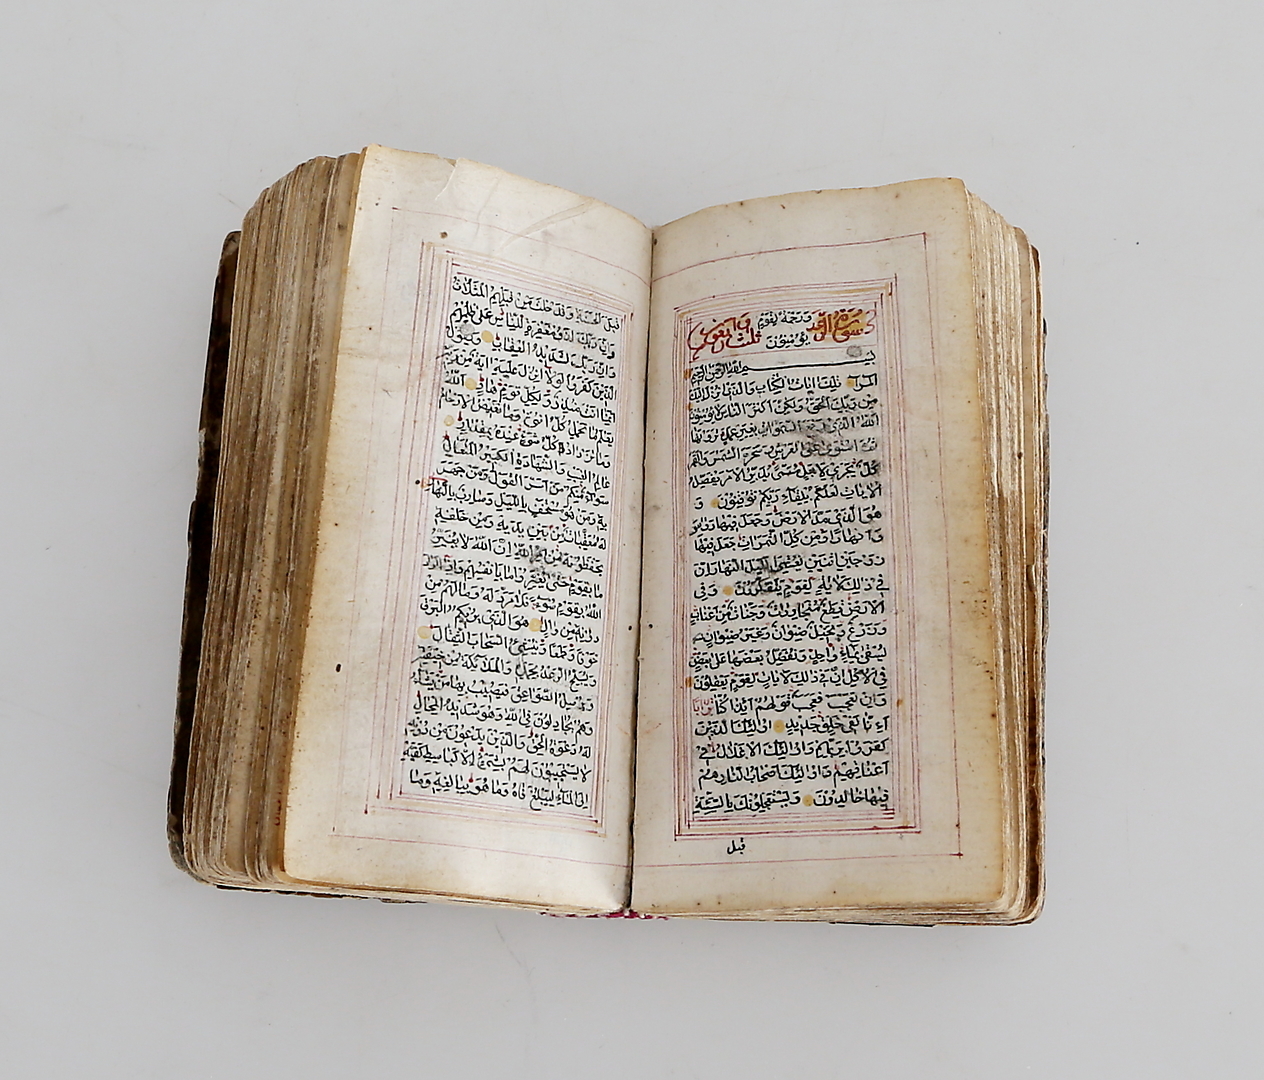 ورحمة لقوم
سورة الرعد يؤمنون ثلث واربعون
بسم الله الرحمن الرحيم
المر تلك ايات الكتاب والذى انزل اليك
من ربك الحق ولكن اكثر الناس لا يؤمنون
الله الذى رفع السموات بغير عمد ترونها
ثم استوى على العرش وسخر الشمس والقمر
كل يجرى لاجل مسمى يدبر الامر يفصل
الايات لعلكم بلقاء ربكم توقنون و
هو الذى مد الارض وجعل فيها رواسى
وانهارا ومن كل الثمرات جعل فيها
زوجين اثنين يغشى الليل النهار ان
فى ذلك لايات لقوم يتفكرون وفى
الارض قطع متجاورات وجنات من اعناب
وزرع ونخيل صنوان وغير صنوان
يسقى بماء واحد ونفضل بعضها على بعض
فى الاكل ان فى ذلك لايات لقوم يعقلون
وان تعجب فعجب قولهم ائذا كنا ترابا
اءنا لفى خلق جديد اولئك الذين
كفروا بربهم واولئك الاغلال فى
اعناقهم واولئك اصحاب النار هم
فيها خالدون ويستعجلونك بالسيئة
قبل
قبل الحسنة وقد خلت من قبلهم المثلات
وان ربك لذو مغفرة للناس على ظلمهم
وان ربك لشديد العقاب ويقول
الذين كفروا لولا انزل عليه اية من ربه
انما انت منذر ولكل قوم هاد الله
يعلم ما تحمل كل انثى وما تغيض الارحام
وما تزداد وكل شىء عنده بمقدار
عالم الغيب والشهادة الكبير المتعال
سواء منكم من اسر القول ومن جهر
به ومن هو مستخف بالليل وسارب بالنهار
له معقبات من بين يديه ومن خلفه
يحفظونه من امر الله ان الله لا يغير
ما بقوم حتى يغيروا ما بانفسهم واذا اراد
الله بقوم سوء فلا مرد له وما لهم من
دونه من وال هو الذى يريكم البرق
خوفا وطمعا وينشئ السحاب الثقال
ويسبح الرعد بحمده والملائكة من خيفته
ويرسل الصواعق فيصيب بها من يشاء
وهم يجادلون فى الله وهو شديد المحال
له دعوة الحق والذين يدعون من دونه
لا يستجيبون لهم بشىء الا كباسط كفيه
الى الماء ليبلغ فاه وما هو ببالغه وما